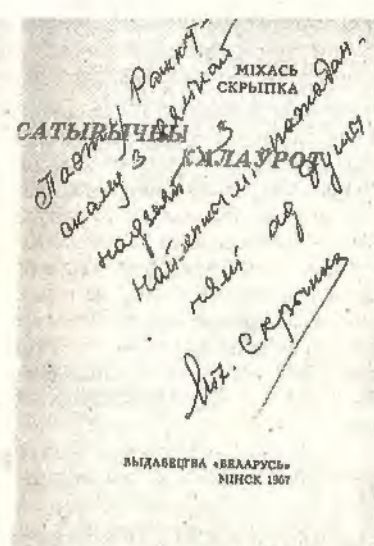 МІХАСЬ
СКРЫПКА
САТЫРЫЧНЫ
КАЛАЎРОТ
Паэту
скаму
з
найлепшымі пажадан-
нямі ад душы
Міх. Скрыпка
ВЫДАВЕЦТВА «БЕЛАРУСЬ»
МІНСК 1967